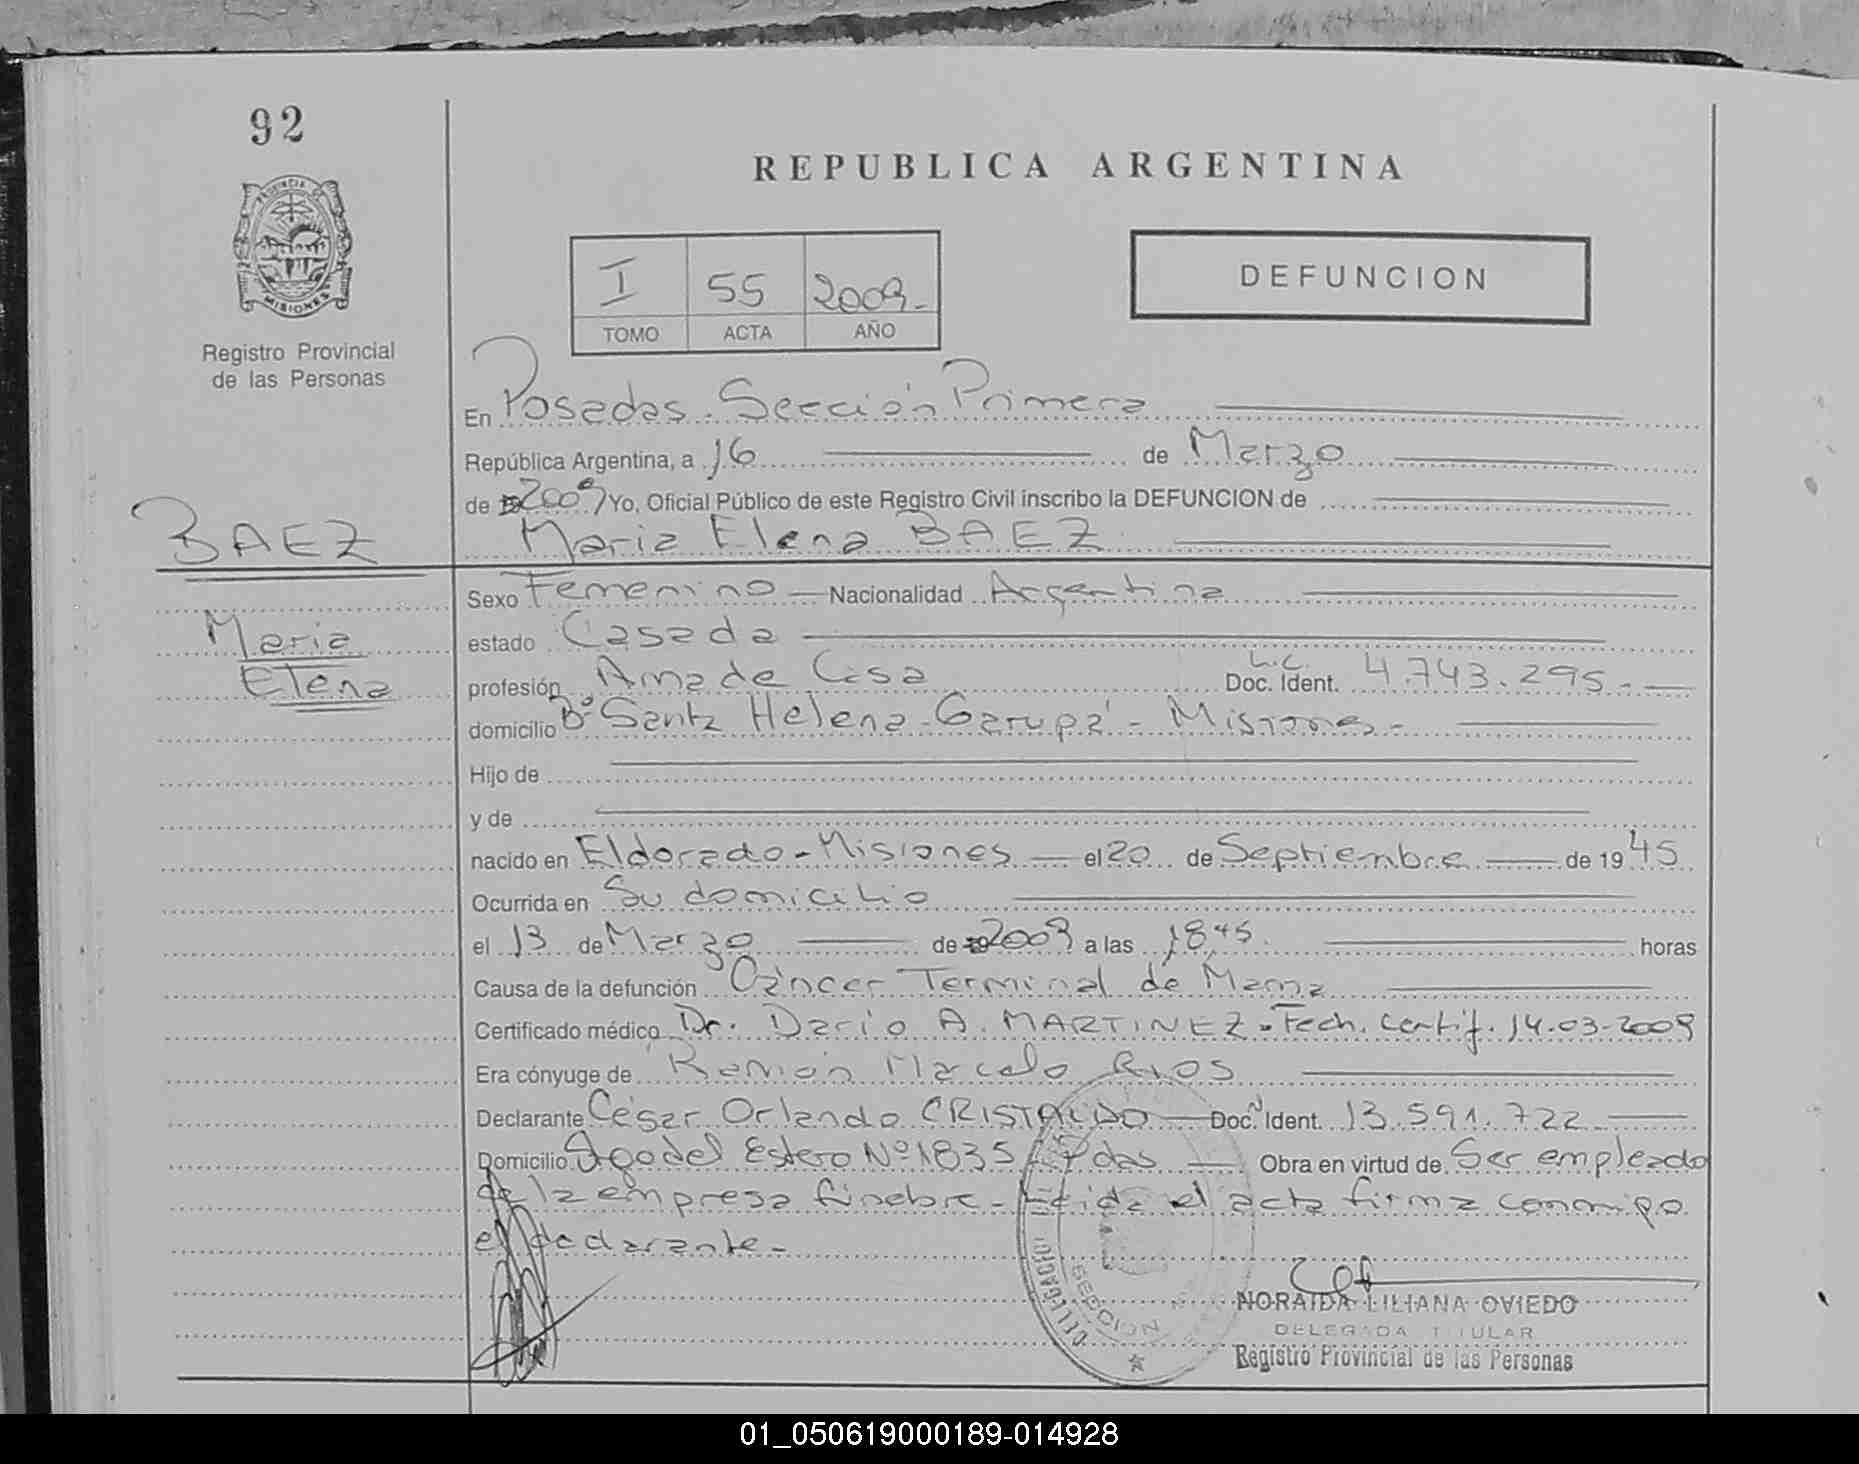 92
REPUBLICA ARGENTINA
PROVINCIA DE
MISIONES
I 55 2009.-
TOMO ACTA AÑO
DEFUNCION
Registro Provincial
de las Personas
En Posadas. Sección Primera
República Argentina, a 16 de Marzo
de 2009 Yo, Oficial Público de este Registro Civil inscribo la DEFUNCION de
BAEZ
Maria Elena BAEZ
Sexo Femenino Nacionalidad Argentina
Maria
estado Casada
Elena
profesión Ama de Casa L.C. Doc. Ident. 4.743.295.-
domicilio Bº Santa Helena - Garupá - Misiones -
Hijo de
y de
nacido en Eldorado - Misiones el 20 de Septiembre de 1945
Ocurrida en Su domicilio
el 13 de Marzo de 2009 a las 18,45. horas
Causa de la defunción Cáncer Terminal de Mama
Certificado médico Dr. Dario A. MARTINEZ. Fech. Certif. 14-03-2009
Era cónyuge de Ramón Marcelo Rios
Declarante César Orlando CRISTALDO Doc. Ident. 13.591.722
Domicilio Sgo del Estero Nº 1835 Pdas Obra en virtud de Ser empleado
de la empresa fúnebre - Leida el acta firma conmigo
el declarante -
DELEGACION
SECCION
NORAIDA LILIANA OVIEDO
DELEGADA TITULAR
Registro Provincial de las Personas
01_050619000189-014928